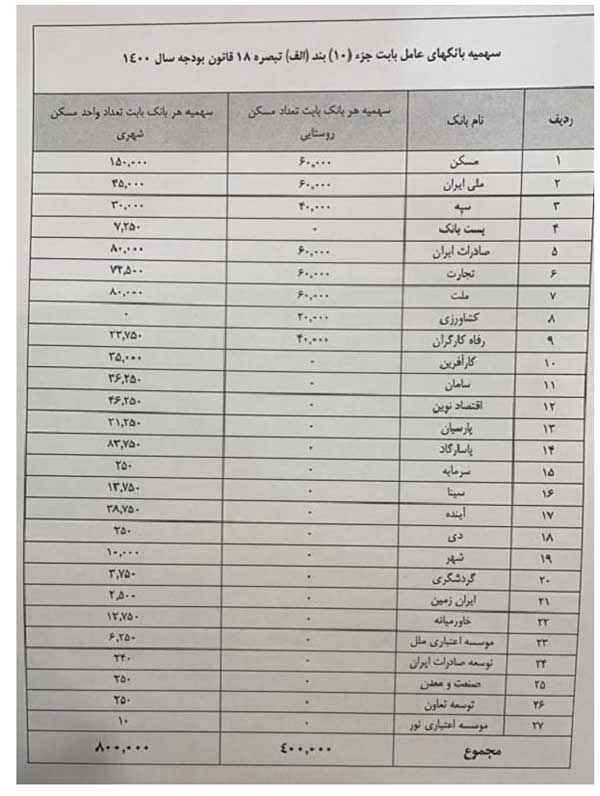 سهمیه بانکهای عامل بابت جزء (۱۰) بند (الف) تبصره ۱۸ قانون بودجه سال ۱۴۰۰
ردیف نام بانک سهمیه هر بانک بابت تعداد مسکن روستایی سهمیه هر بانک بابت تعداد واحد مسکن شهری
۱ مسکن ۶۰,۰۰۰ ۱۵۰,۰۰۰
۲ ملی ایران ۶۰,۰۰۰ ۴۵,۰۰۰
۳ سپه ۴۰,۰۰۰ ۳۰,۰۰۰
۴ پست بانک - ۷,۲۵۰
۵ صادرات ایران ۶۰,۰۰۰ ۸۰,۰۰۰
۶ تجارت ۶۰,۰۰۰ ۷۲,۵۰۰
۷ ملت ۶۰,۰۰۰ ۸۰,۰۰۰
۸ کشاورزی ۲۰,۰۰۰ ۰
۹ رفاه کارگران ۴۰,۰۰۰ ۲۳,۷۵۰
۱۰ کارآفرین - ۳۵,۰۰۰
۱۱ سامان ۰ ۳۶,۲۵۰
۱۲ اقتصاد نوین ۰ ۴۶,۲۵۰
۱۳ پارسیان ۰ ۲۱,۲۵۰
۱۴ پاسارگاد ۰ ۸۳,۷۵۰
۱۵ سرمایه ۰ ۲۵۰
۱۶ سینا ۰ ۱۳,۷۵۰
۱۷ آینده ۰ ۳۸,۷۵۰
۱۸ دی ۰ ۲۵۰
۱۹ شهر ۰ ۱۰,۰۰۰
۲۰ گردشگری ۰ ۳,۷۵۰
۲۱ ایران زمین ۰ ۲,۵۰۰
۲۲ خاورمیانه ۰ ۱۲,۷۵۰
۲۳ موسسه اعتباری ملل ۰ ۶,۲۵۰
۲۴ توسعه صادرات ایران ۰ ۲۴۰
۲۵ صنعت و معدن ۰ ۲۵۰
۲۶ توسعه تعاون ۰ ۲۵۰
۲۷ موسسه اعتباری نور ۰ ۱۰
مجموع ۴۰۰,۰۰۰ ۸۰۰,۰۰۰